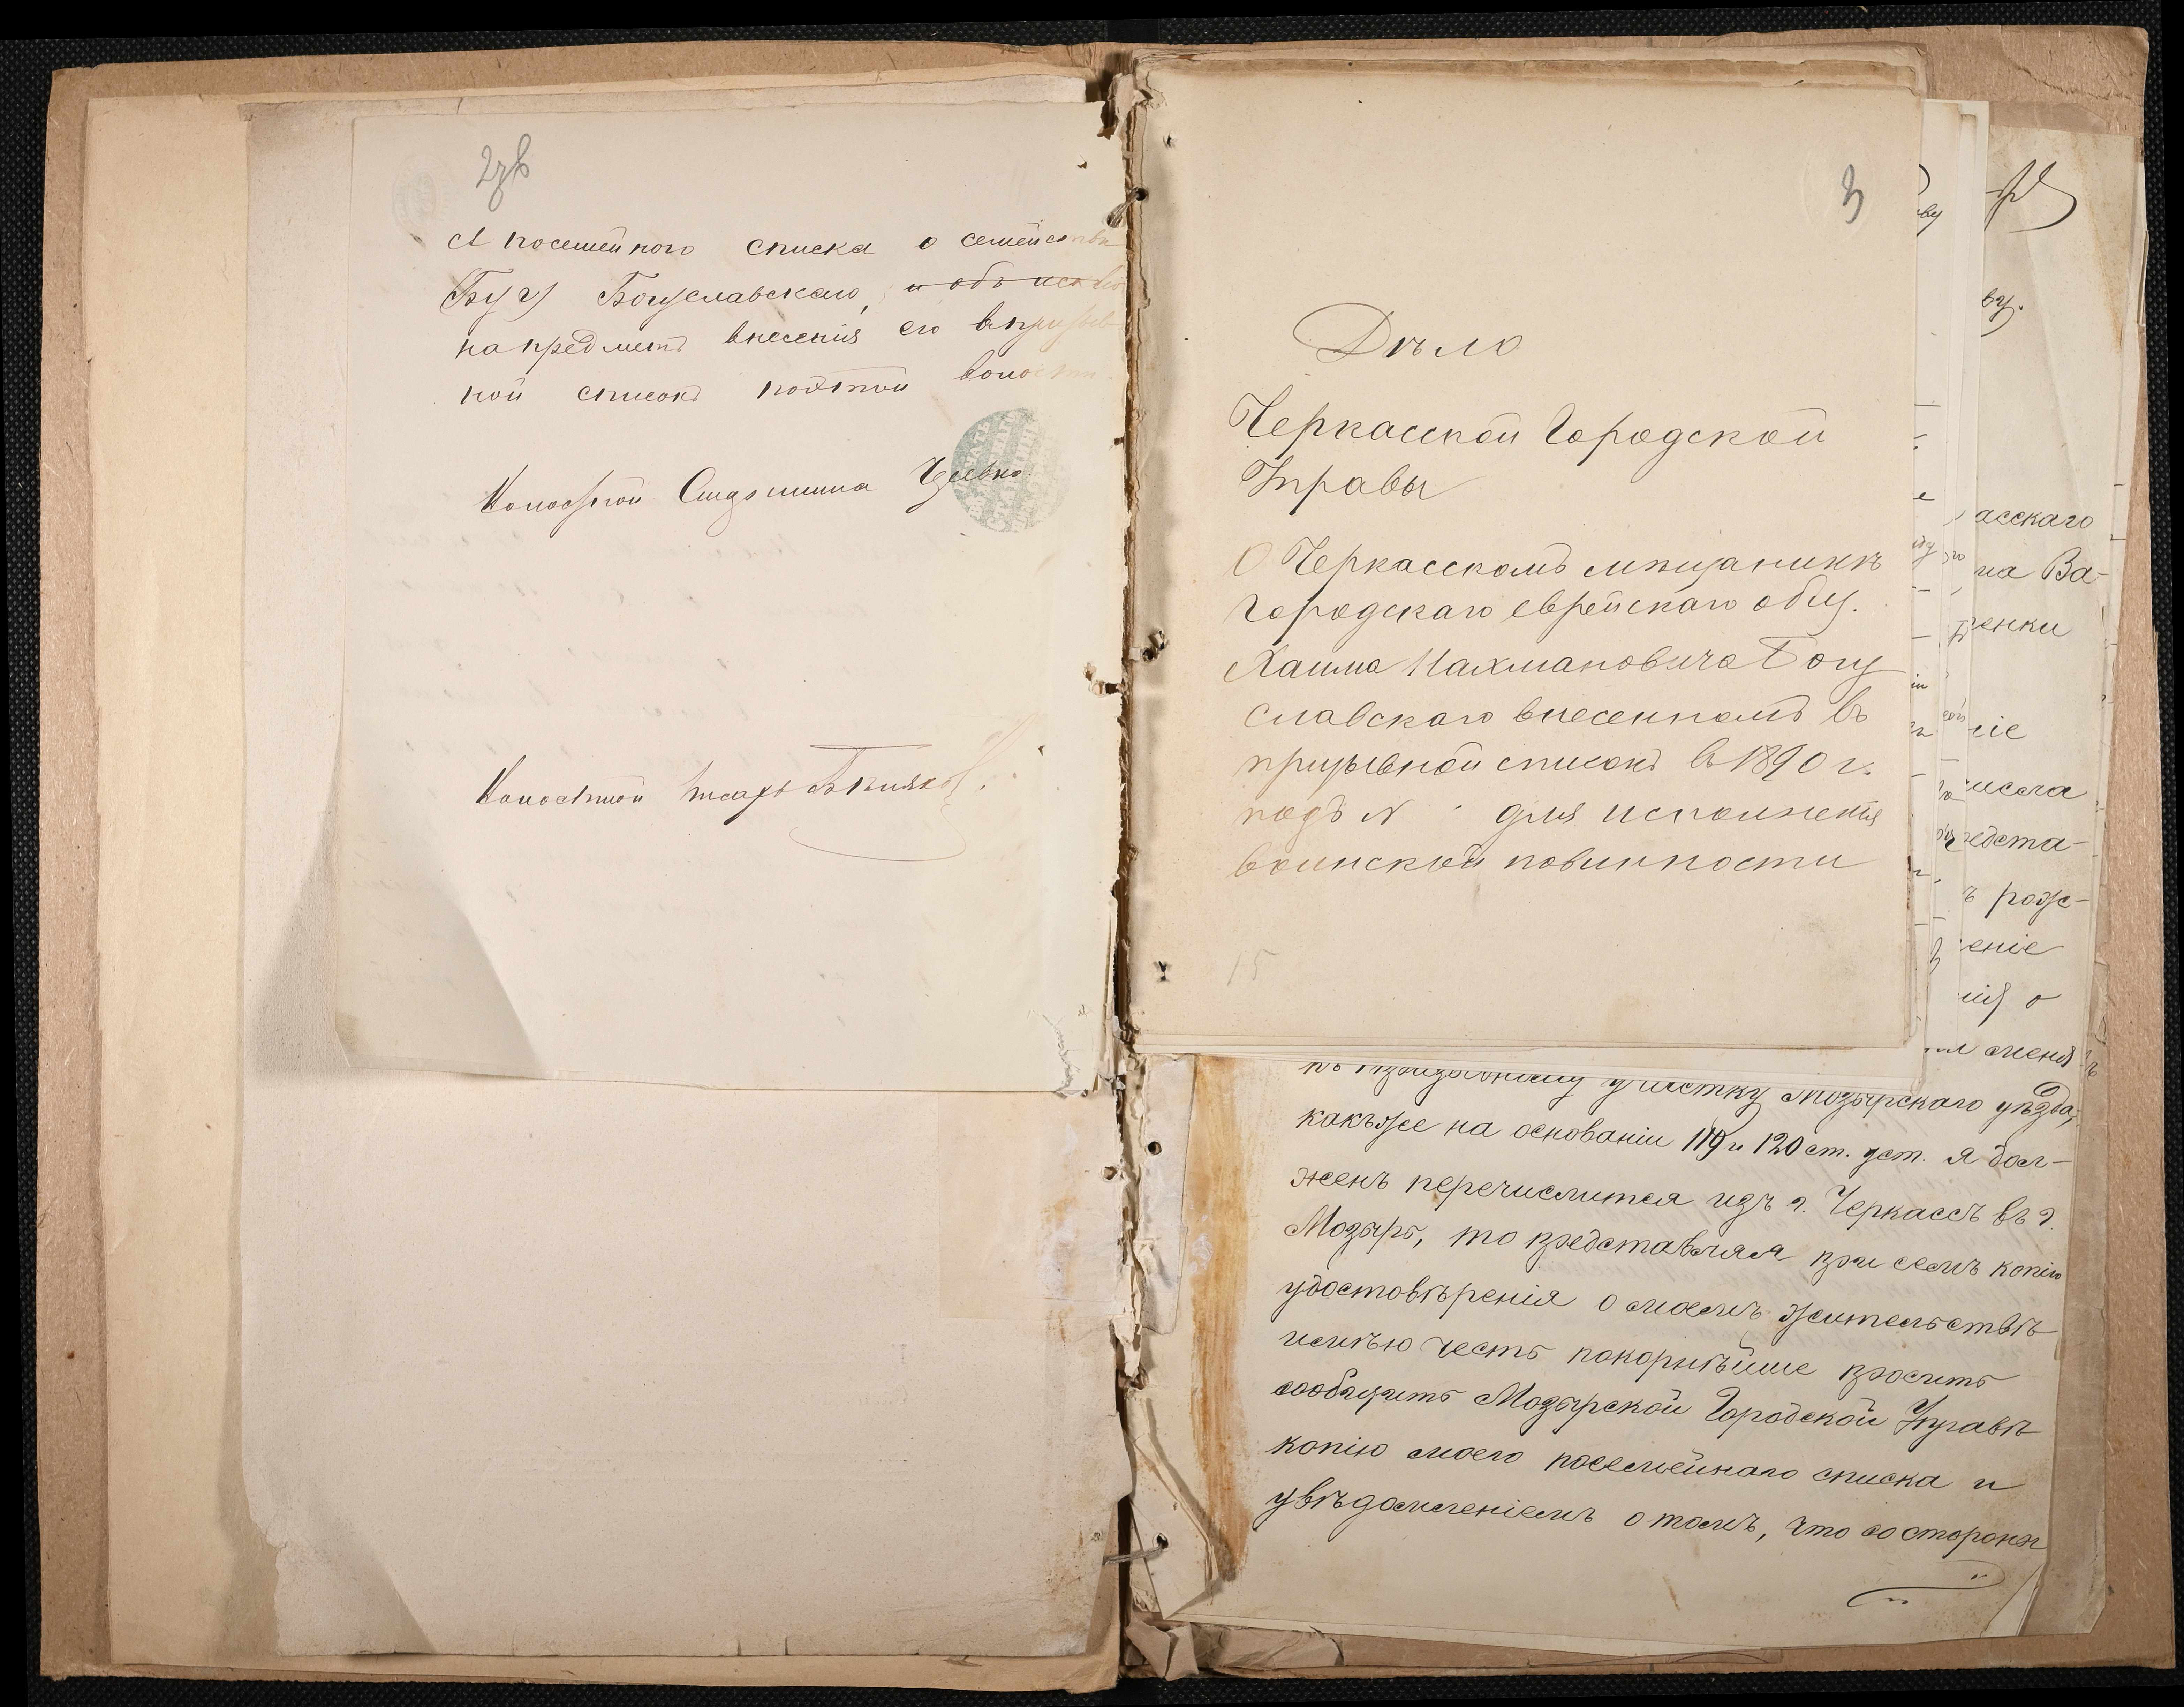 2зв
посемейного списка о семействѣ
Бугу Богуславскаго, и объ
на предметъ внесенія его въ призыв
ной списокъ подтой волости
Волостной Старшина
Волостной писарь
3
Дѣло
Черкасской Городской
Управы
О Черкасскомъ мѣщанинѣ
Городскаго еврейскаго общ.
Хаима Нахмановича Богу
славскаго внесенномъ въ
призывной списокъ въ 1890 г.
подъ N для исполненія
воинской повинности
15
асскаго
на Ва-
ренки
ніе
числа
редста-
ъ рож-
еніе
нія о
меня
участку Мозырскаго уѣзда,
какъ же на основаніи 119 и 120 ст. уст. я дол-
женъ перечислится изъ г. Черкассъ въ г.
Мозырь, то представляя при семъ копію
удостовѣренія о моемъ жительствѣ
имѣю честь покорнѣйше просить
сообщить Мозырской Городской Управѣ
копію моего посемейнаго списка и
увѣдомленіемъ о томъ, что со стороны